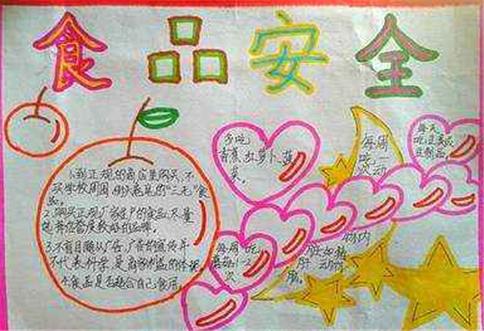 食品安全
1.到正规的商店里购买,不
买学校周围
"三无"食
品。
2.购买正规厂家生产的食品,尽量
选择信誉度较好的品牌。
3.不盲目随从广告,广告的宣传并
不代表科学,是商家利益的体现。
4.食品是否适合自己食用。
多吃
青菜、红萝卜、菠
菜。
每周
吃一
次
每天
豆制品。
每周吃
1-2
次
动物内
脏,如猪
肝